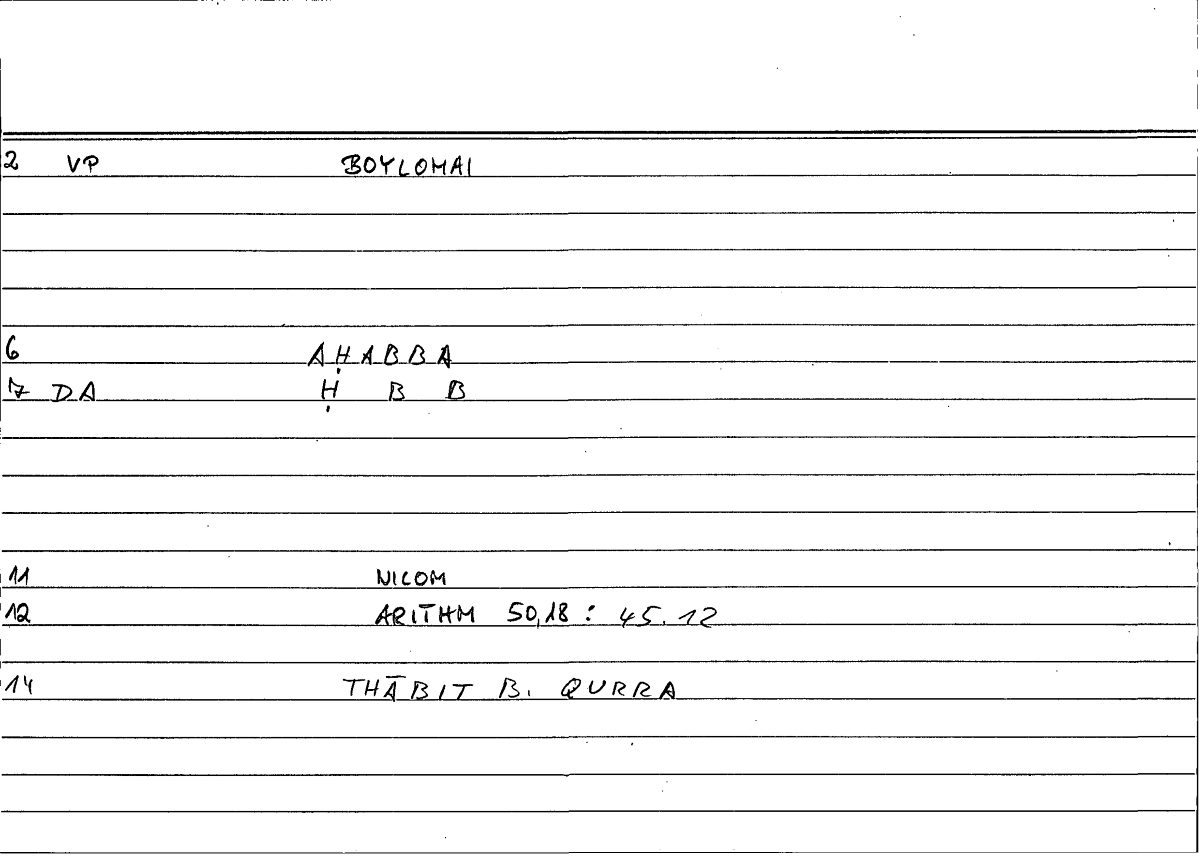 2 VP BOYLOMAI
6 AḤABBA
7 DA Ḥ B B
11 NICOM
12 ARITHM 50,18 : 45.12
14 THĀBIT B. QURRA